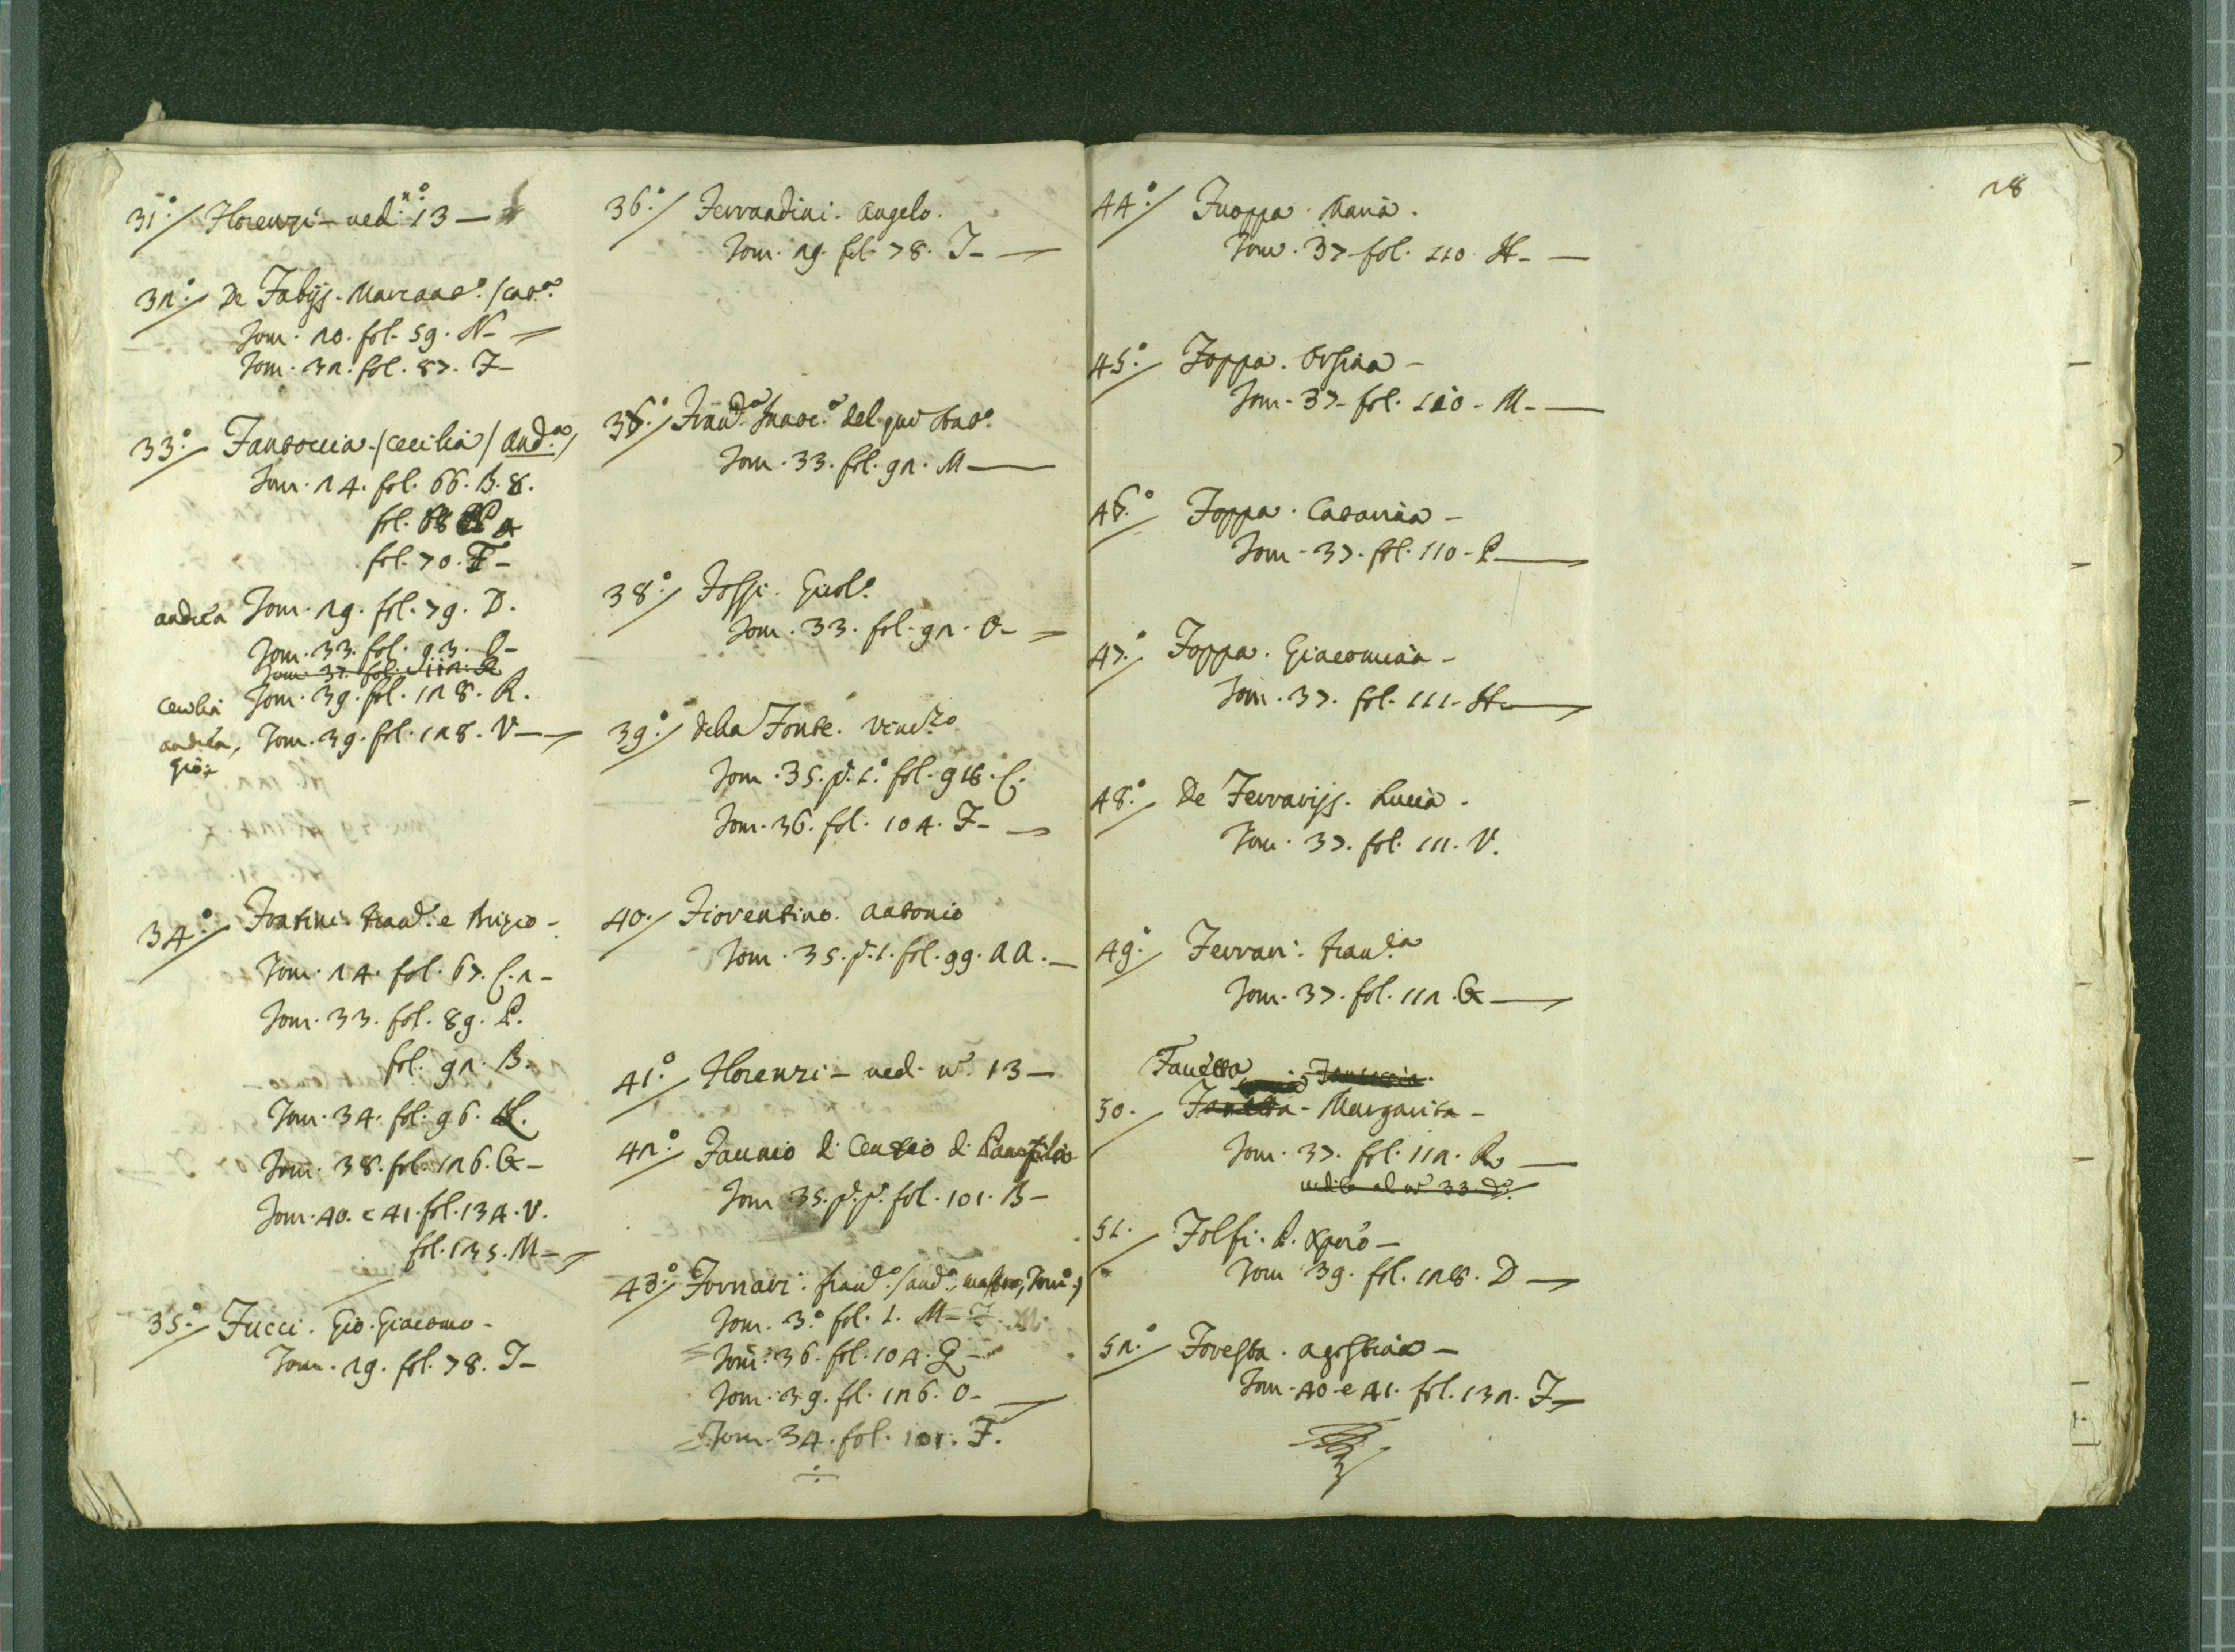 31.º/ Florenzi - ved: nº 13 -
32.º/ De Fabijs. Marcant.º /Cat.ª
Tom. 20. fol. 59. N -
Tom. 32. fol. 87. F -
33.º/ Fantoccia. /Cecilia/ And.ª/
Tom. 24. fol. 66. B. 8.
fol. 68
fol. 70. F -
Andrea Tom. 29. fol. 79. D.
Tom. 33. fol. 93.
Tom. 37. fol. 112. R
Cecilia Tom. 39. fol. 128. R.
Andrea, Tom. 39. fol. 128. V -
Gio:
34.º/ Fontini. Fran.º e Brizio -
Tom. 24. fol. 67. C. 2 -
Tom. 33. fol. 89. P.
fol. 92. B.
Tom. 34. fol. 96.
Tom. 38. fol. 126. G -
Tom. 40. e 41. fol. 134. V.
fol. 135. M -
35.º/ Fucci. Gio. Giacomo -
Tom. 29. fol. 78. I -
36.º/ Ferrandini. Angelo.
Tom. 29. fol. 78. I -
Tom. 33. fol. 92. M
38.º/ Fossi. Girol.º
Tom. 33. fol. 92. O -
39.º/ della Fonte. Vinc.zo
Tom. 35. p. 1.º fol. 98. C.
Tom. 36. fol. 104. F -
40./ Fiorentino. Antonio
Tom. 35. p. 1. fol. 99. AA. -
41.º/ Florenzi - ved. nº 13 -
42.º/ Faunio di Centio di Panfilio
Tom. 35. p. p. fol. 101. B -
43.º/ Fornari. Fran.º /And.ª,
Tom. 3.º fol. 1. M - F.
Tom. 36. fol. 104. Q -
Tom. 39. fol. 126. O -
Tom. 34. fol. 101. F.
28
44.º/ Fuoppa. Maria.
Tom. 37. fol. 110. H -
45.º/ Foppa. Orsina -
Tom. 37. fol. 110. M -
46.º/ Foppa. Catarina -
Tom. 37. fol. 110 - P
47.º/ Foppa. Giacomina -
Tom. 37. fol. 111. H
48.º/ De Ferrarijs. Lucia.
Tom. 37. fol. 111. V.
49.º/ Ferrari. Fran.ca
Tom. 37. fol. 112. G
Fanetta
50./ Fanetta - Margarita -
Tom. 37. fol. 112. R
vedi al nº 33. dº
51./ Folfi. P. Xpero -
Tom. 39. fol. 128. D -
52.º/ Foresta. Agostina -
Tom. 40. e 41. fol. 132. F